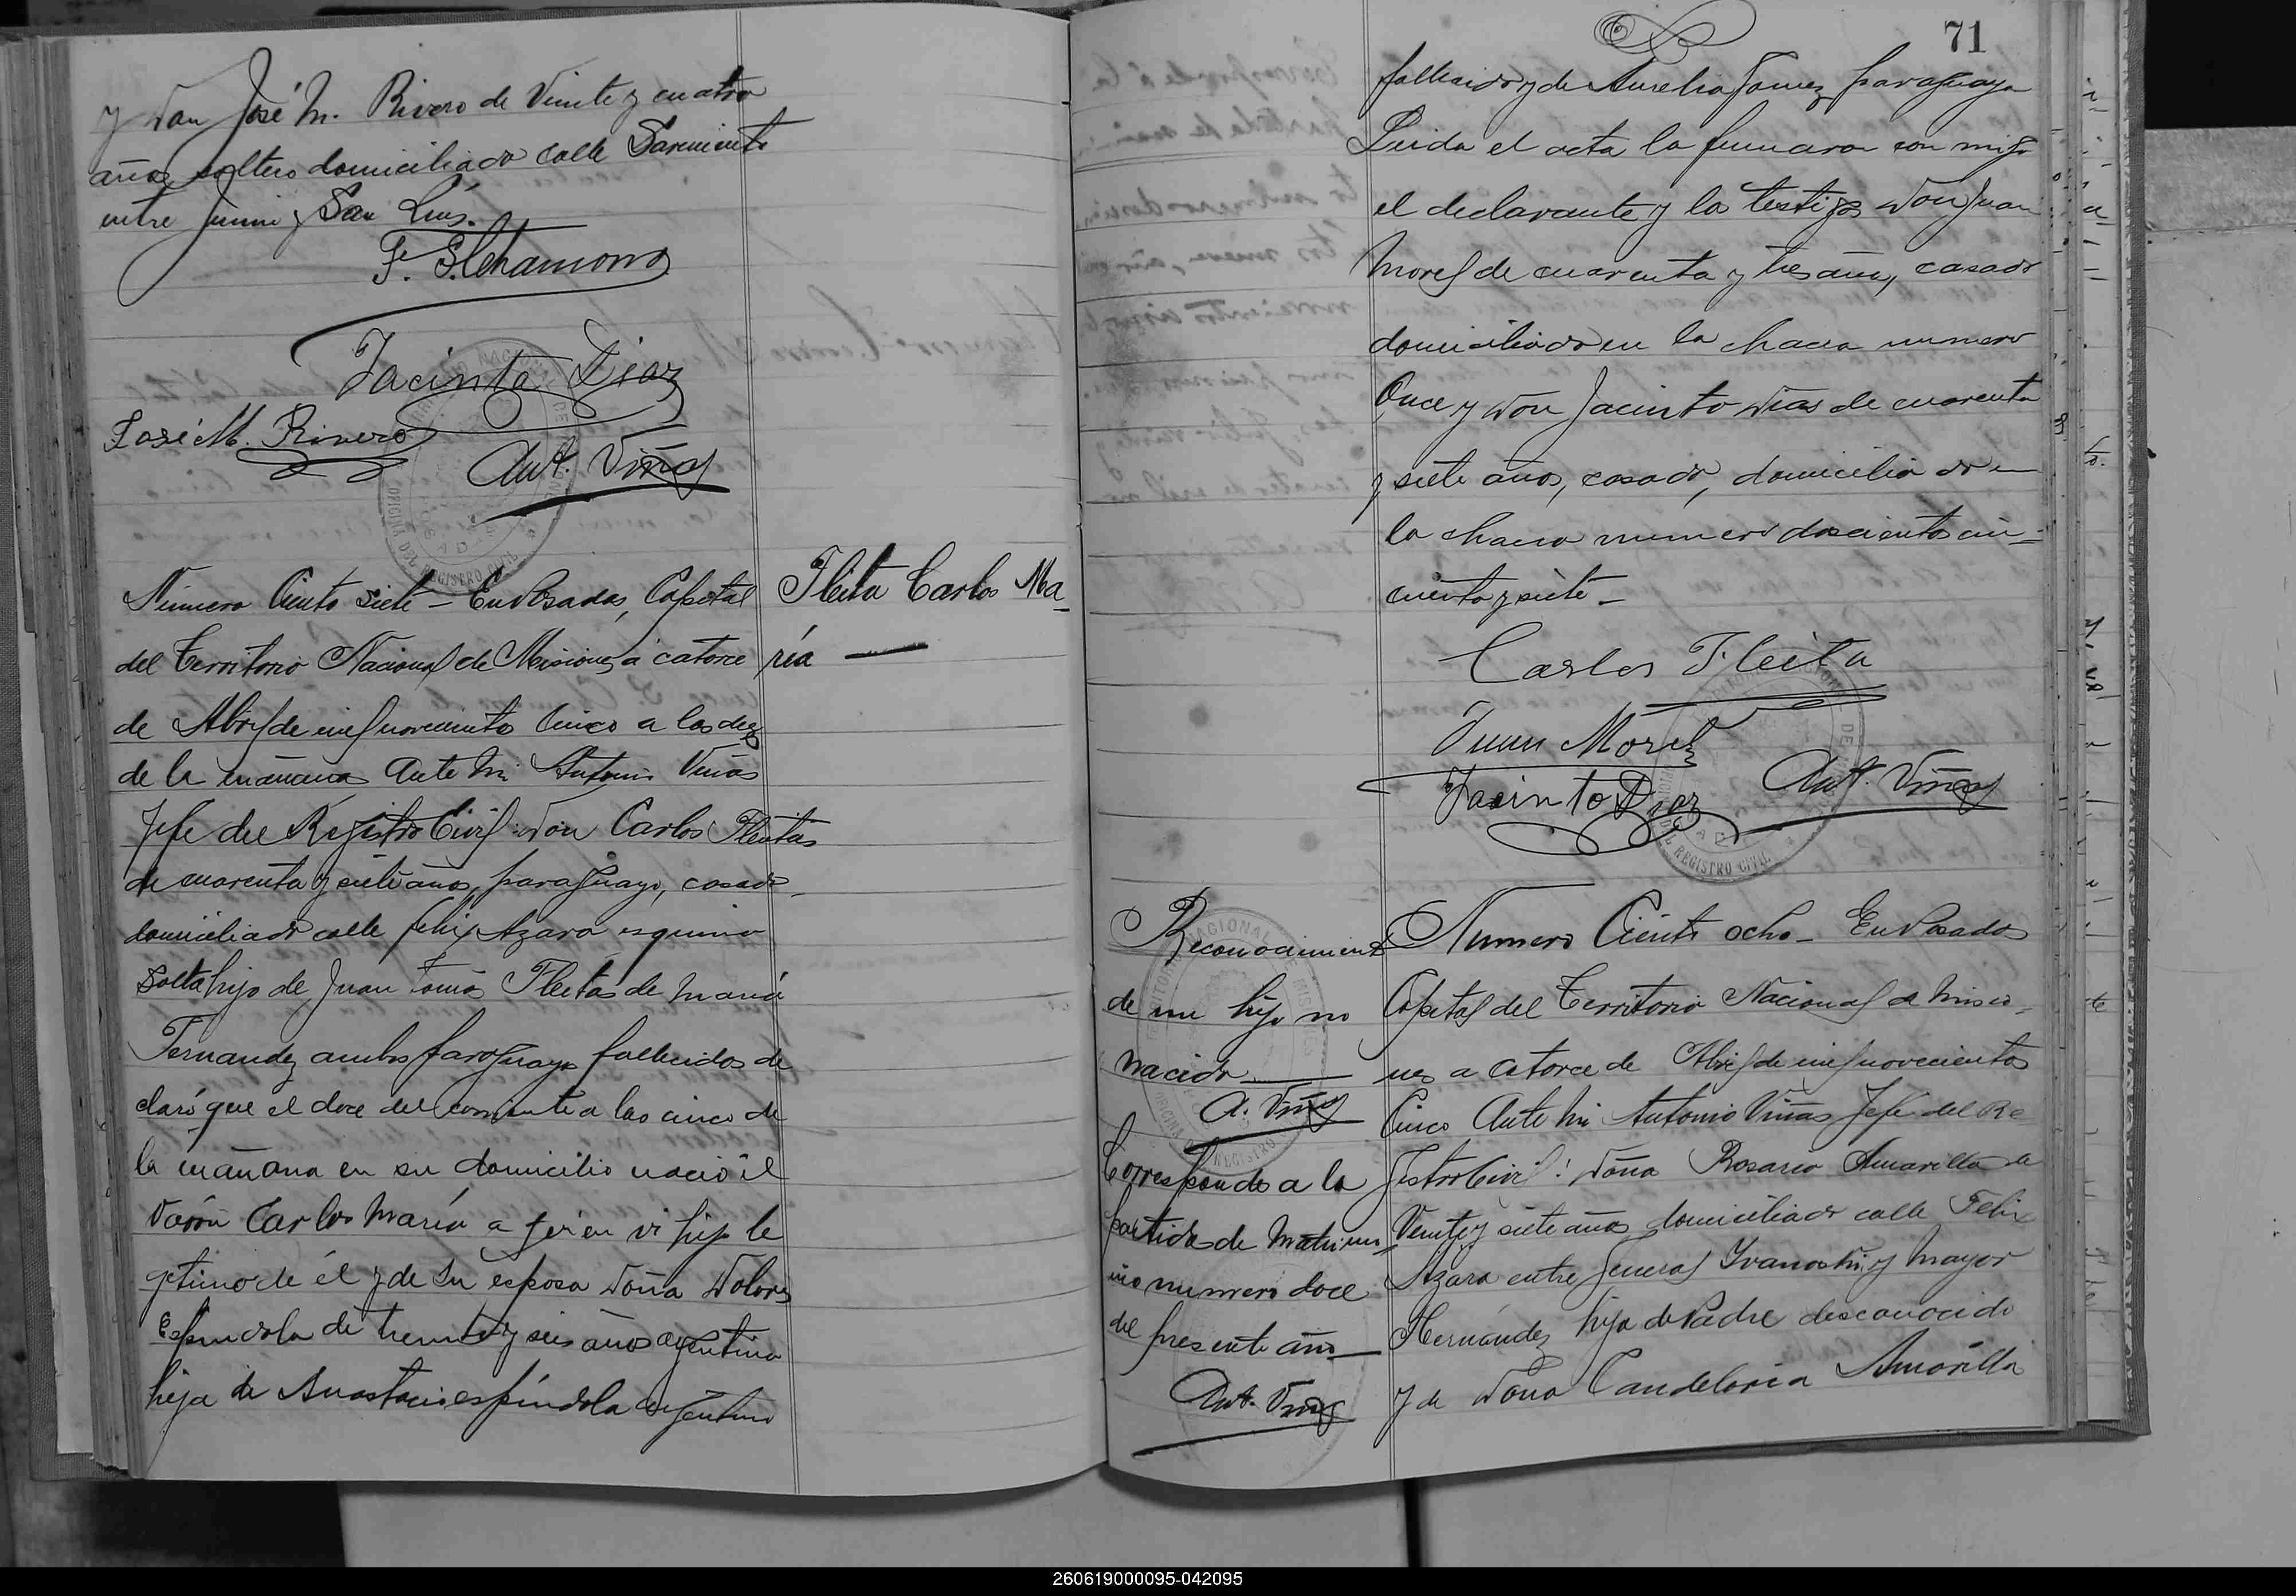 y Don José M. Rivero de Veinte y cuatro
años soltero domiciliado calle Sarmiento
entre Junin y San Luis.
Jacinto Diaz
José M. Rivero
Ant. Viñas
Numero Ciento siete – En Posadas, Capital
del Territorio Nacional de Misiones a catorce
de Abril de mil novecientos Cinco a las diez
de la mañana Ante Mi Antonio Viñas
Jefe del Registro Civil: Don Carlos Fleitas
de cuarenta y siete años, paraguayo, casado
domiciliado calle Felix Azara esquina
Salta hijo de Juan Tomás Fleitas de Maria
Fernandez ambos paraguayos fallecidos de
claró que el doce del corriente a las cinco de
la mañana en su domicilio nació el
varón Carlos María a quien vi hijo le
gitimo de él y de su esposa Doña Dolores
Espindola de treinta y seis años argentina
hija de Anastacio Espíndola argentino
Fleita Carlos Ma_
ría —
71
fallecido y de Aurelia Gomez paraguaya
Leida el acta la firmaron con migo
el declarante y los testigos Don Juan
Morel de cuarenta y tres años, casado
domiciliado en la chacra numero
Once y Don Jacinto Dias de cuarenta
y siete años, casado, domiciliado en
la chacra numero doscientos cin=
cuenta y siete –
Carlos Fleita
Juan Morel
Jacinto Diaz
Ant. Viñas
OFICINA DEL REGISTRO CIVIL
Reconocimiento
de un hijo no
nacido —
A. Viñas
Corresponde a la
partida de Matrimo
nio numero doce
del presente año –
Ant. Viñas
Numero Ciento ocho – En Posadas
Capital del Territorio Nacional de Misio_
nes a catorce de Abril de mil novecientos
Cinco Ante Mi Antonio Viñas Jefe del Re
gistro Civil: Doña Rosario Amarilla de
Veinte y siete años domiciliado calle Felix
Azara entre General Ivanoski y Mayor
Hernández hija de Padre desconocido
y de Doña Candeloria Amarilla
260619000095-042095